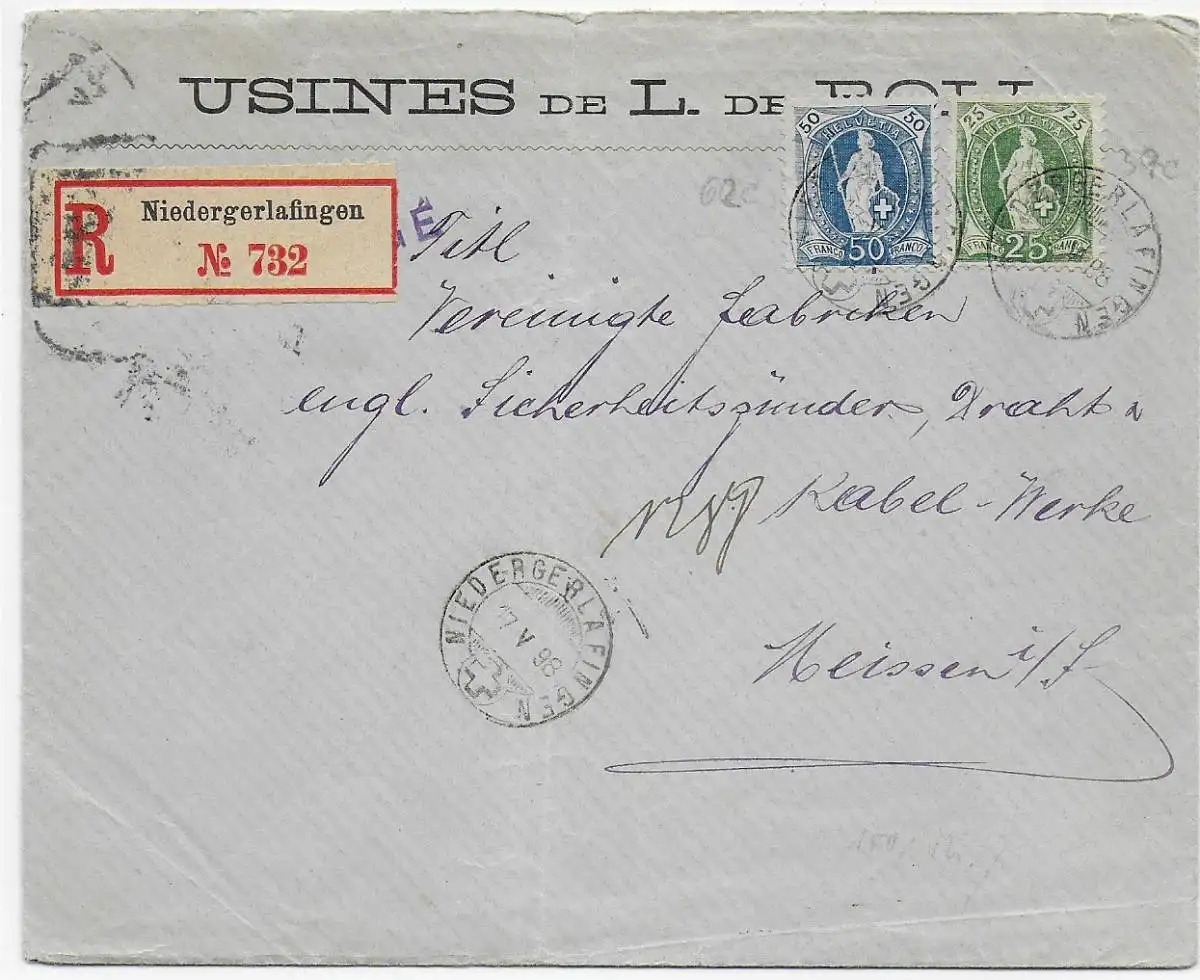 USINES DE L. DE ROLL
50 HELVETIA 50
FRANCO 50 FRANCO
25 HELVETIA 25
FRANCO 25 FRANCO
62c
R Niedergerlafingen
№ 732
NIEDERGERLAFINGEN
Titl
Vereinigte Fabriken
engl. Sicherheitszünder, Draht u
Kabel-Werke
NIEDERGERLAFINGEN
17 V 98
Meissen i/S